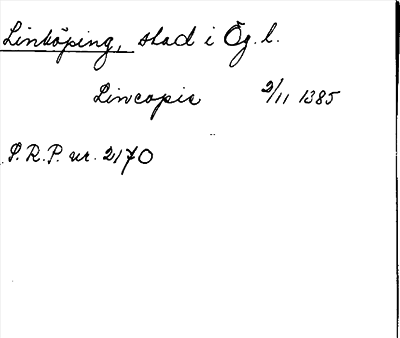 Linköping, stad i Ög. l.
Lincopie 2/11 1385
S.R.P. nr. 2170